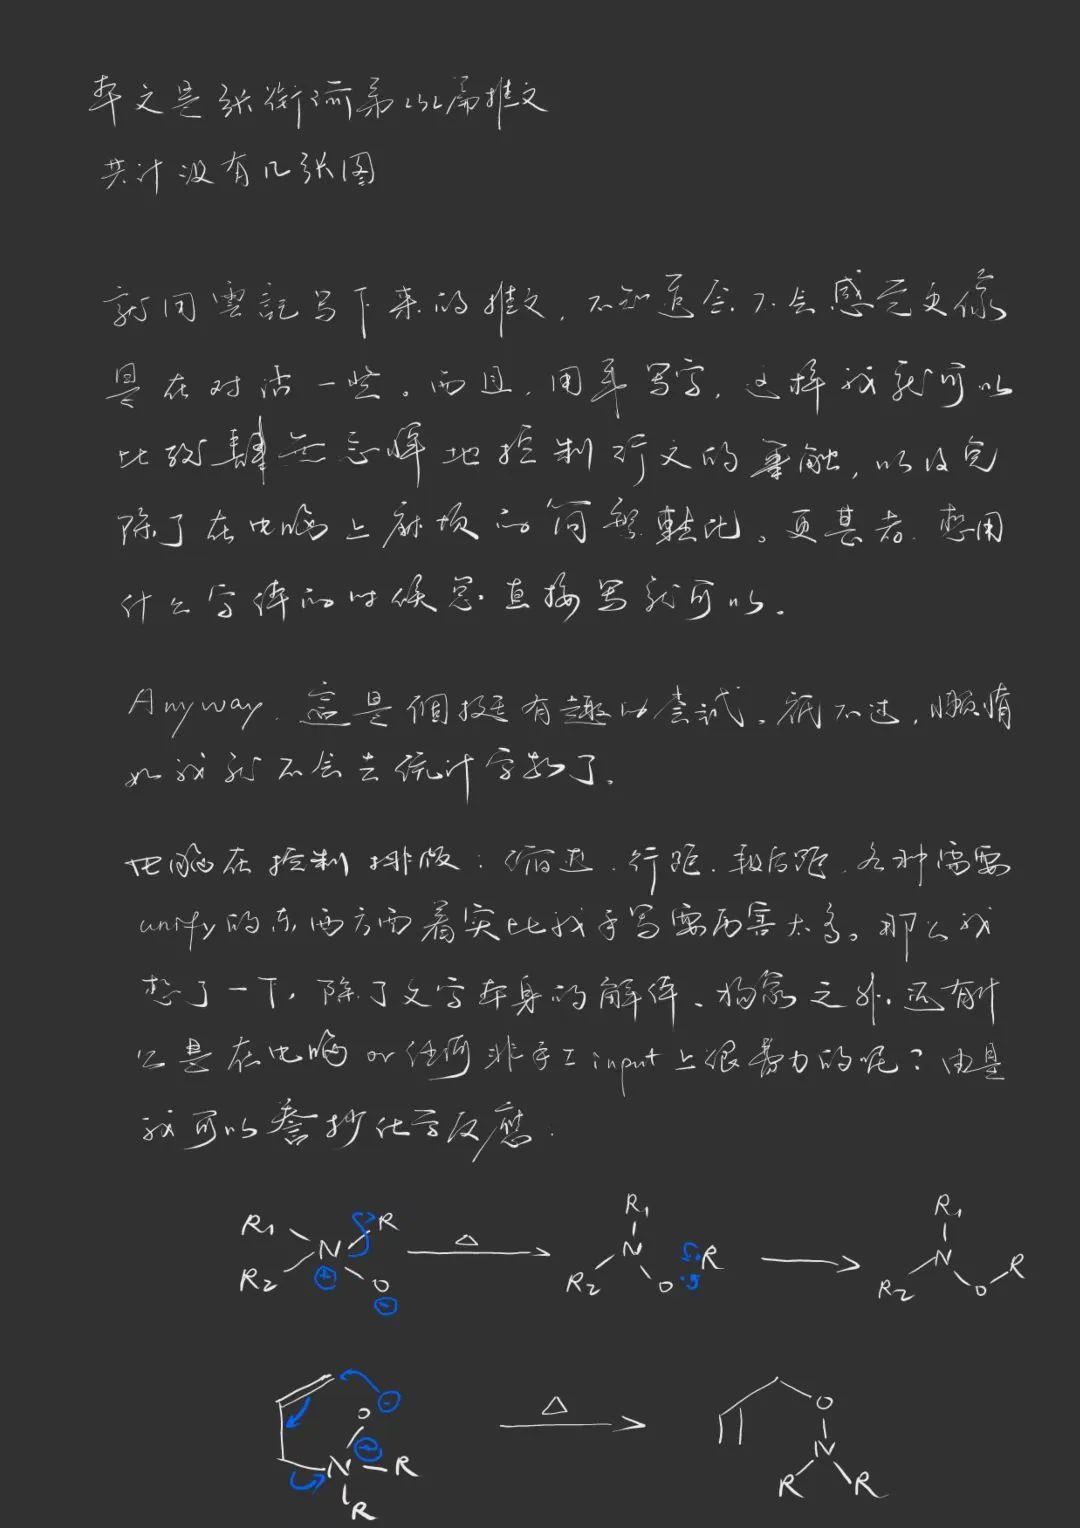 本文是张衔流第232篇推文
共计没有几张图
就用雲記写下来的推文，不知道会不会感觉更像
是在对话一些。而且，用手写字，这样我就可以
比较肆無忌惮地控制行文的筆触，以及免
除了在电脑上麻烦的简繁轉化。更甚者，想用
什么字体的时候，直接写就可以。
Anyway，這是個挺有趣的尝试。祇不过，懒惰
如我就不会去统计字数了。
电脑在控制排版：缩进、行距、段后距、各种需要
unify的东西方面着实比我手写要厉害太多。那么我
想了一下，除了文字本身的解体、之外，还有什
么是在电脑 or 任何非手工 input 上很暴力的呢？由是
我可以誊抄化学反應：
R1 R N R2 O ⊕ ⊖ Δ R1 N R2 O R R1 N R2 O R
O ⊖ ⊕ N R R Δ O N R R